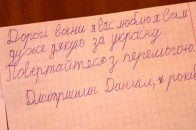 Дорогі воїни я вас люблю я вам
дуже дякую за україну
Повертайтеся з перемогою
Дмитришин Даніїл, 8 років